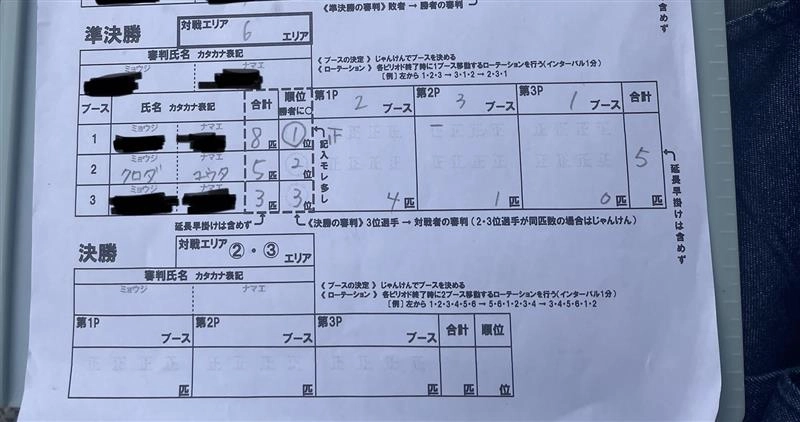 《準決勝の審判》敗者 → 勝者の審判
含めず
準決勝
対戦エリア 6 エリア
審判氏名 カタカナ表記
ミョウジ ナマエ
《 ブースの決定 》じゃんけんでブースを決める
《 ローテーション 》各ピリオド終了時に1ブース移動するローテーションを行う(インターバル1分)
[例] 左から 1・2・3 → 3・1・2 → 2・3・1
ブース 氏名 カタカナ表記 合計 順位 勝者に○ 第1P 2 ブース 第2P 3 ブース 第3P 1 ブース 合計
1 ミョウジ ナマエ 8 匹 ① 位
2 ミョウジ ナマエ クロダ ユウタ 5 匹 2 位
3 ナマエ 3 匹 3 位
記入モレ多し
正 正 正 正 一 正 正 正 正 正 正 正 正
4 匹 1 匹 0 匹 5 匹
延長早掛けは含めず
延長早掛けは含めず
《決勝の審判》3位選手 → 対戦者の審判 (2・3位選手が同匹数の場合はじゃんけん)
決勝
対戦エリア ②・③ エリア
審判氏名 カタカナ表記
ミョウジ ナマエ
《 ブースの決定 》じゃんけんでブースを決める
《 ローテーション 》各ピリオド終了時に2ブース移動するローテーションを行う(インターバル1分)
[例] 左から 1・2・3・4・5・6 → 5・6・1・2・3・4 → 3・4・5・6・1・2
第1P ブース 第2P ブース 第3P ブース 合計 順位
正 正 正 正 正 正 正 正 正 正 正 正
匹 匹 匹 匹 位